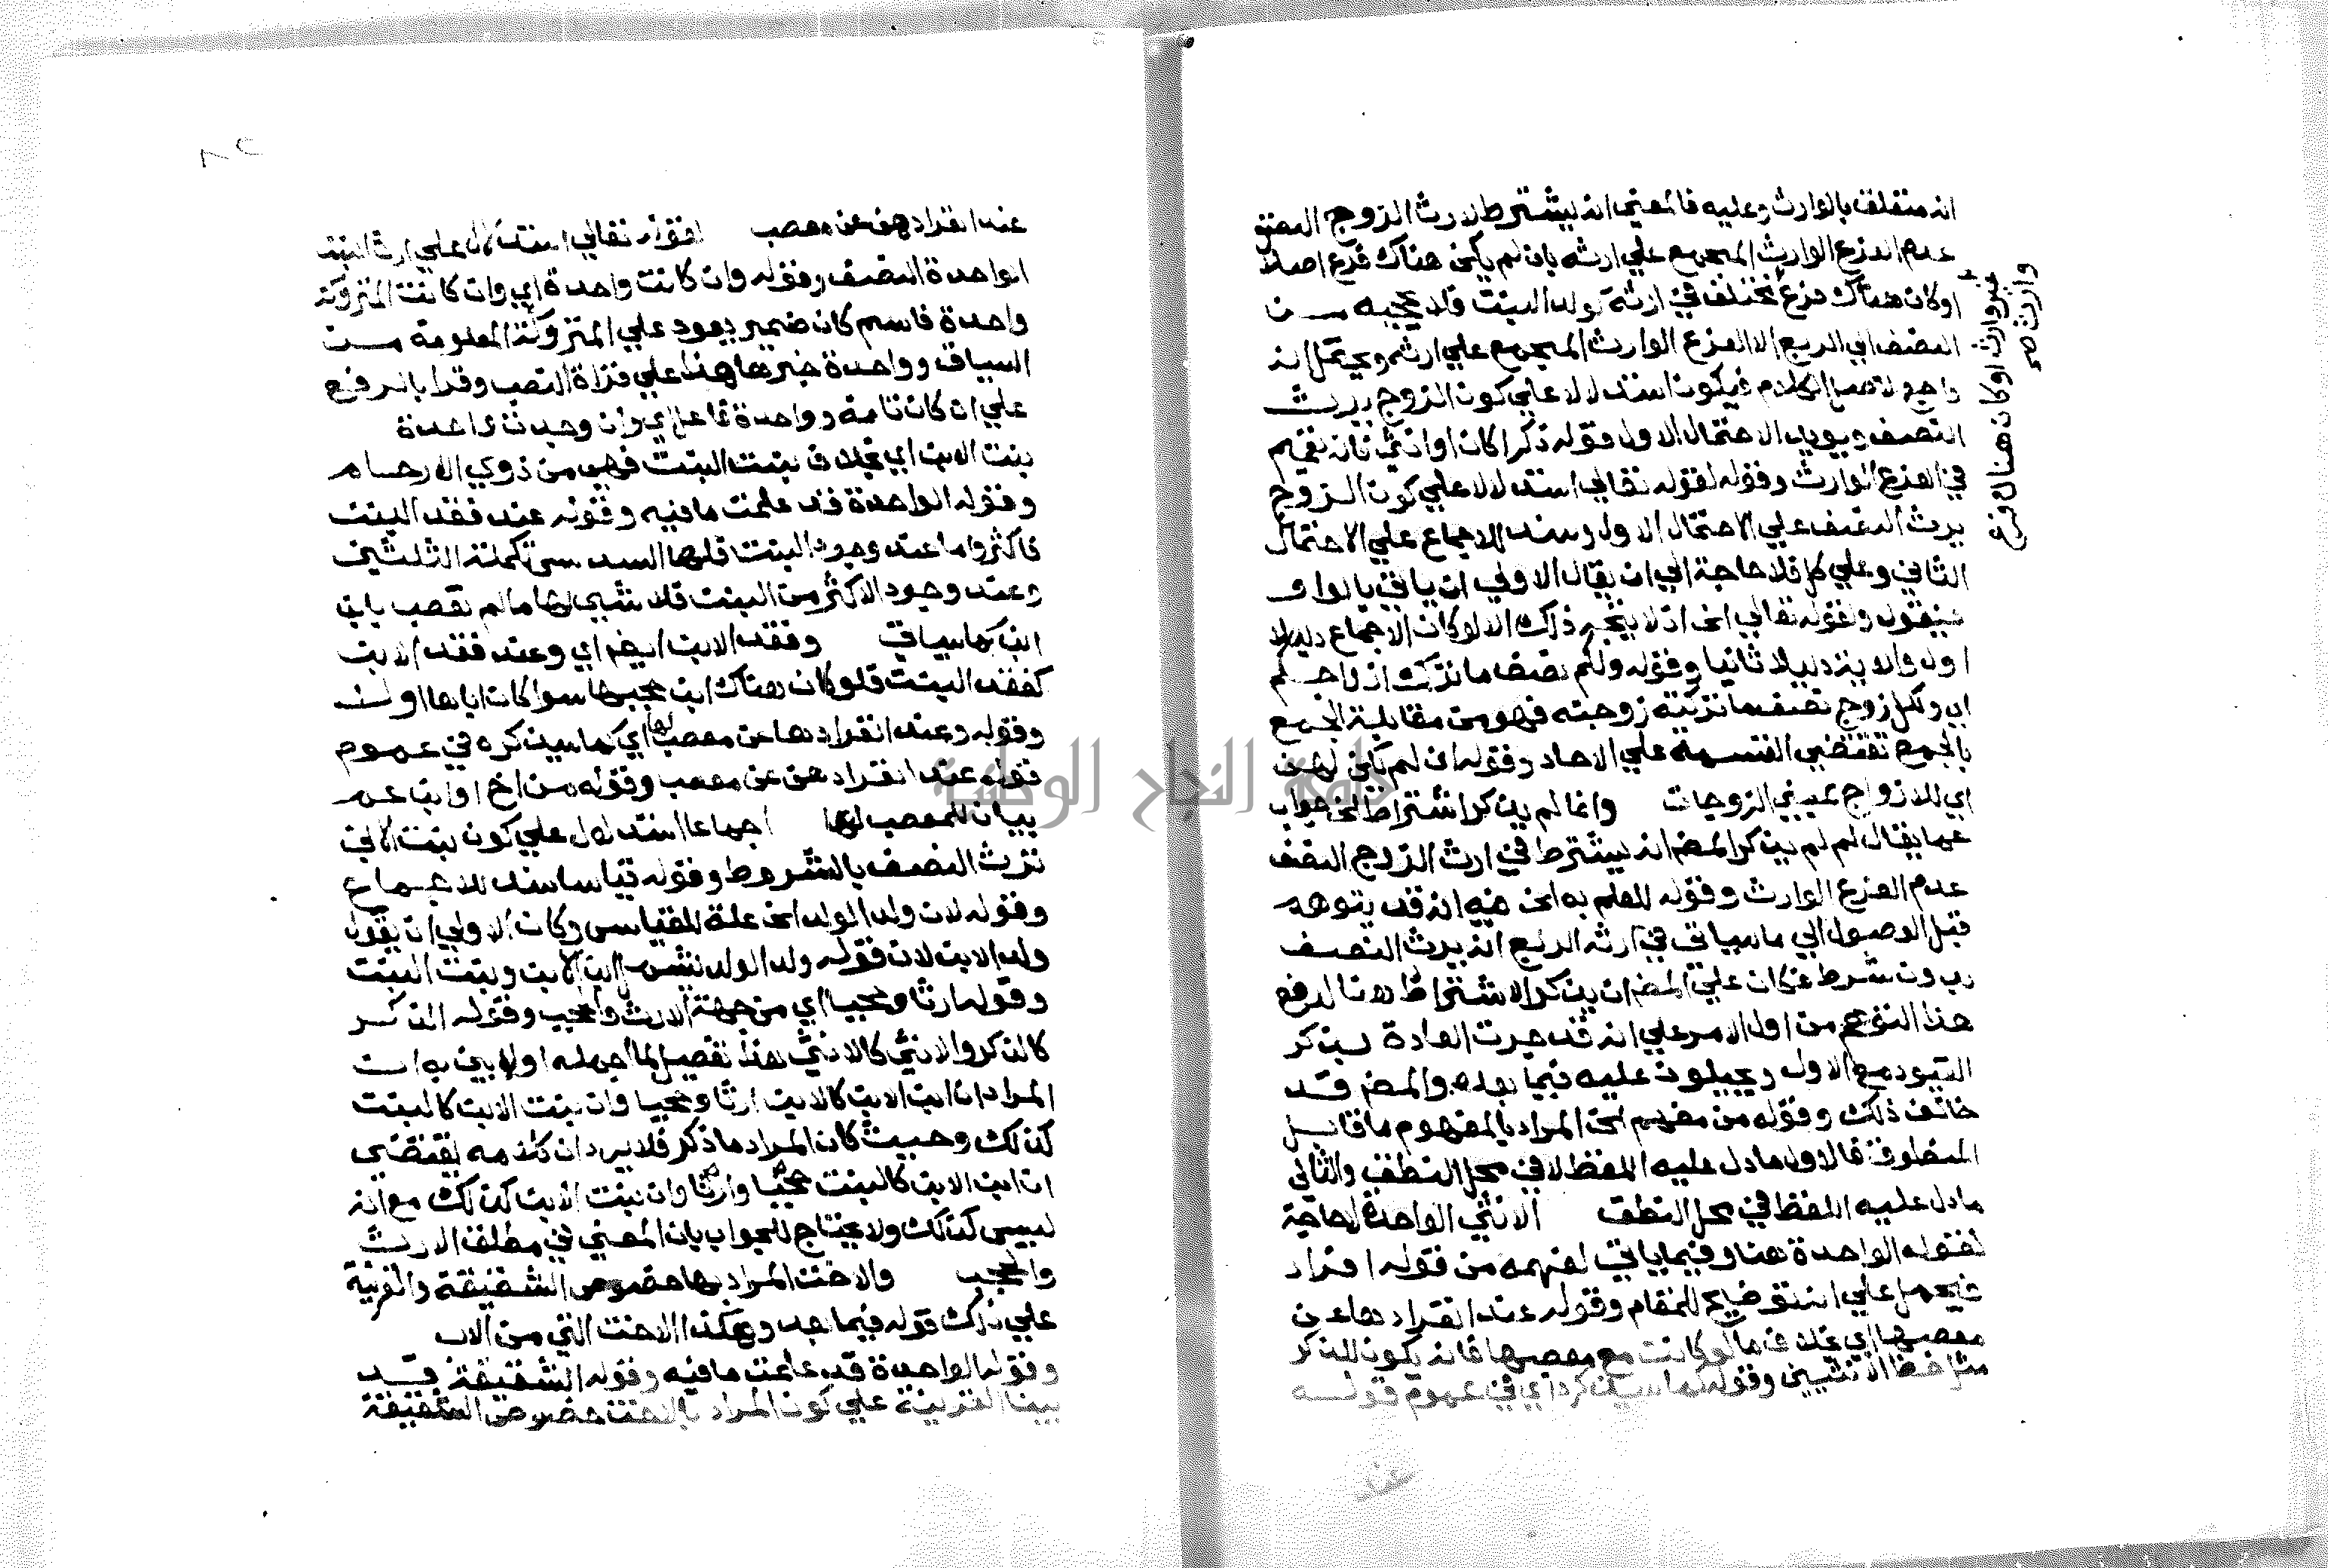 انه متعلق بالوارث وعليه فالمعني انه يشترط لارث الزوج النصف
عدم الفرع الوارث المجمع علي ارثه بان لم يكن هناك فرع اصلا
او كان هناك فرع مختلف في ارثه كولد البنت فلا يحجبه مــن
النصف الي الربع الا الفرع الوارث المجمع علي ارثه ويحتمل انه
راجع لاصل الكلام فيكون استدلالا علي كون الزوج يرث
النصف ويويد الاحتمال الاول قوله ذكرا كان او انثي فانه تعميم
في الفرع الوارث وقوله لقوله تعالي استدلال علي كون الزوج
يرث النصف علي الاحتمال الاول وسند للاجماع علي الاحتمال
الثاني وعلي كل فلا حاجة الي ان يقال الاولي ان ياتي بالواو
فيقول ولقوله تعالي الخ اذ لا يتجه ذلك الا لو كان الاجماع دليلا
اول والاية دليلا ثانيا وقوله ولكم نصف ما ترك ازواجكم
اي ولكل زوج نصف ما تركته زوجته فهو من مقابلة الجمع
بالجمع تقتضي القسمة علي الاحاد وقوله ان لم يكن لهن
اي للازواج بمعني الزوجات وانما لم يذكر اشتراط الخ جواب
عما يقال لم لم يذكر المصـ انه يشترط في ارث الزوج النصف
عدم الفرع الوارث وقوله للعلم به الخ فيه انه قد يتوهم
قبل الوصول الي ما سياتي في ارثه الربع انه يرث النصف
بدون شرط فكان علي المصـ ان يذكر الاشتراط لانا لدفع
هذا التوهم من اول الامر علي انه قد جرت العادة بذكر
القيود مع الاول ويحيلون عليه فيما بعده والمصـ قــد
خالف ذلك وقوله من مفهوم الخ المراد بالمفهوم ما قابــل
المنطوق فالاول ما دل عليه اللفظ لا في محل النطق والثاني
ما دل عليه اللفظ في محل النطق الانثي الواحدة لا حاجة
لقوله الواحدة هنا وفيما ياتي لفهمه من قوله افراد
فيحمل علي انه توضيح للمقام وقوله عند انفرادها عن
معصبها اي بخلاف ما لو كانت مع معصبها فانه يكون للذكر
مثل حظ الانثيين وقوله كما سيذكره اي في عموم قولــه
عند
غير وارث او كان هناك فرع
وارث صح
عند انفرادهن عن معصب لقوله تعالي استدلال علي ارث البنت
الواحدة النصف وقوله وان كانت واحدة اي وان كانت المتروكة
واحدة فاسم كان ضمير يعود علي المتروكة المعلومة مــن
السياق وواحدة خبرها هذا علي قراة النصب وقرا بالرفع
علي ان كان تامة وواحدة فاعل اي وان وجدت واحدة
بنت الابن اي بخلاف بنت البنت فهي من ذوي الارحام
وقوله الواحدة قد علمت ما فيه وقوله عند فقد البنت
فاكثر واما عند وجود البنت فلها السدس تكملة الثلثين
وعند وجود الاكثر من البنت فلا شي لها ما لم تعصب بابن
ابن كما سياتي وفقد الابن ايضا اي وعند فقد الابن
كفقد البنت فلو كان هناك ابن حجبها سوا كان اباها او لا
وقوله وعند انفرادها عن معصب لها اي كما سيذكره في عموم
قوله عند انفرادهن عن معصب وقوله من اخ او ابن عم
بيان للمعصب لها اجماعا استدلال علي كون بنت الابن
ترث النصف بالشروط وقوله قياسا سند للاجماع
وقوله لان ولد الولد الخ علة للقياس وكان الاولي ان يقول
ولد الابن لان قوله ولد الولد يشمل ابن الابن وبنت البنت
وقوله ارثا وحجبا اي من جهة الارث والحجب وقوله الذكر
كالذكر والانثي كالانثي هذا تفصيل لما اجمله اولا بين به ان
المراد ان ابن الابن كالابن ارثا وحجبا وان بنت الابن كالبنت
كذلك وحيث كان المراد ما ذكر فلا يرد ان كلامه يقتضي
ان ابن الابن كالبنت حجبا وارثا وان بنت الابن كذلك مع انه
ليس كذلك ولا يحتاج للجواب بان المعني في مطلق الارث
والحجب والاخت المراد بها خصوص الشقيقة والقرينة
علي ذلك قوله فيما بعد وهكذا الاخت التي من الاب
وقوله الواحدة قد علمت ما فيه وقوله الشقيقة قــد
بينا القرينة علي كون المراد بالاخت خصوص الشقيقة
جامعة النجاح الوطنية